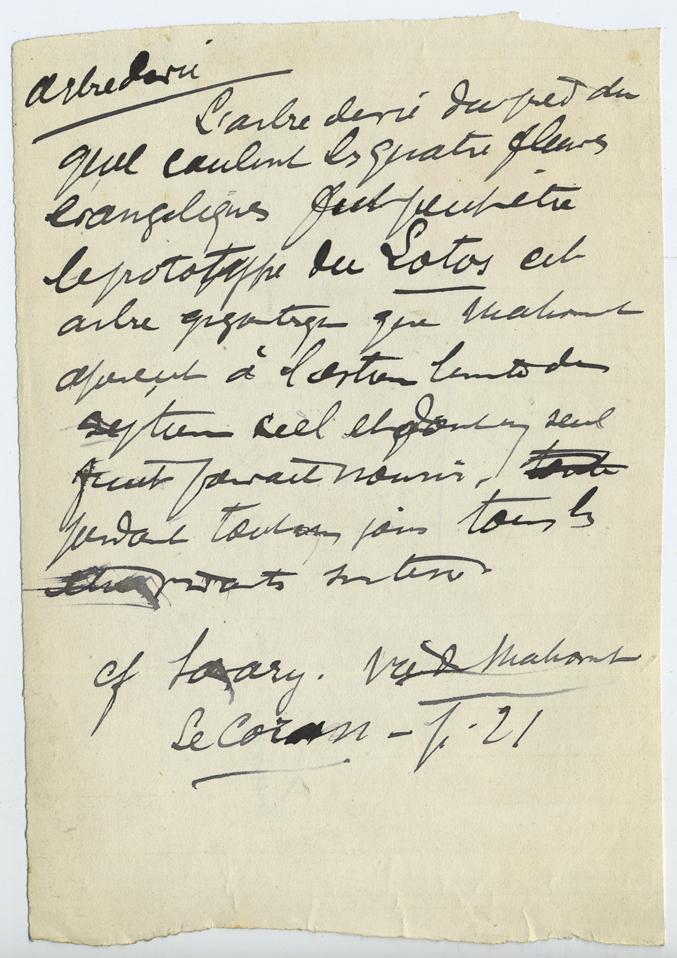 arbre de vie
L'arbre de vie du pied du
quel coulent les quatre fleuves
evangeliques fut peut être
le prototype du Lotos cet
arbre gigantesque que Mahomet
aperçut à l'extreme limite du
septieme ciel et dont un seul
fruit pourrait nourrir,
pendant tout un jour tous les
vivants sur terre.
cf Savary. Vie de Mahomet
Le Coran - p. 21